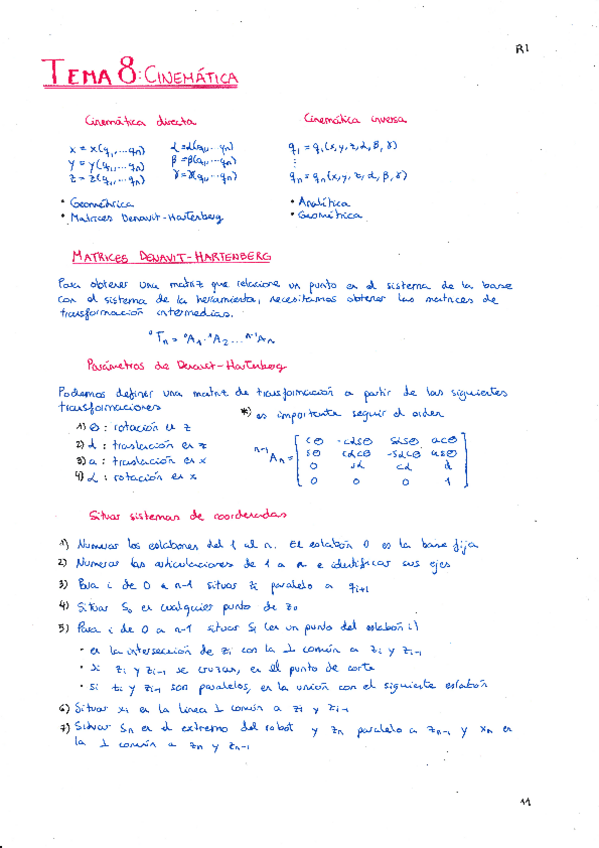 R1
TEMA 8: CINEMÁTICA
Cinemática directa
x = x(q1, ... qn)   α = α(q1, ... qn)
y = y(q1, ... qn)   β = β(q1, ... qn)
z = z(q1, ... qn)   γ = γ(q1, ... qn)
• Geométrica
• Matrices Denavit-Hartenberg
Cinemática inversa
q1 = q1(x, y, z, α, β, γ)
⋮
qn = qn(x, y, z, α, β, γ)
• Analítica
• Geométrica
MATRICES DENAVIT-HARTENBERG
Para obtener una matriz que relacione un punto en el sistema de la base
con el sistema de la herramienta, necesitamos obtener las matrices de
transformación intermedias.
⁰Tn = ⁰A1 · ¹A2 ... ⁿ⁻¹An
Parámetros de Denavit-Hartenberg
Podemos definir una matriz de transformación a partir de las siguientes
transformaciones
*) es importante seguir el orden
1) θ : rotación en z
2) d : traslación en z
3) a : traslación en x
4) α : rotación en x
ⁿ⁻¹An = [ cθ  -cαsθ  sαsθ  acθ
sθ  cαcθ  -sαcθ  asθ
0  sα  cα  d
0  0  0  1 ]
Situar sistemas de coordenadas
1) Numerar los eslabones del 1 al n. El eslabón 0 es la base fija
2) Numerar las articulaciones de 1 a n e identificar sus ejes
3) Para i de 0 a n-1 situar zi paralelo a qi+1
4) Situar S0 en cualquier punto de z0
5) Para i de 0 a n-1 situar Si (en un punto del eslabón i)
• en la intersección de zi con la ⊥ común a zi y zi-1
• Si zi y zi-1 se cruzan, en el punto de corte
• si zi y zi-1 son paralelos, en la unión con el siguiente eslabón
6) Situar xi en la línea ⊥ común a zi y zi-1
7) Situar Sn en el extremo del robot y zn paralelo a zn-1 y xn en
la ⊥ común a zn y zn-1
11